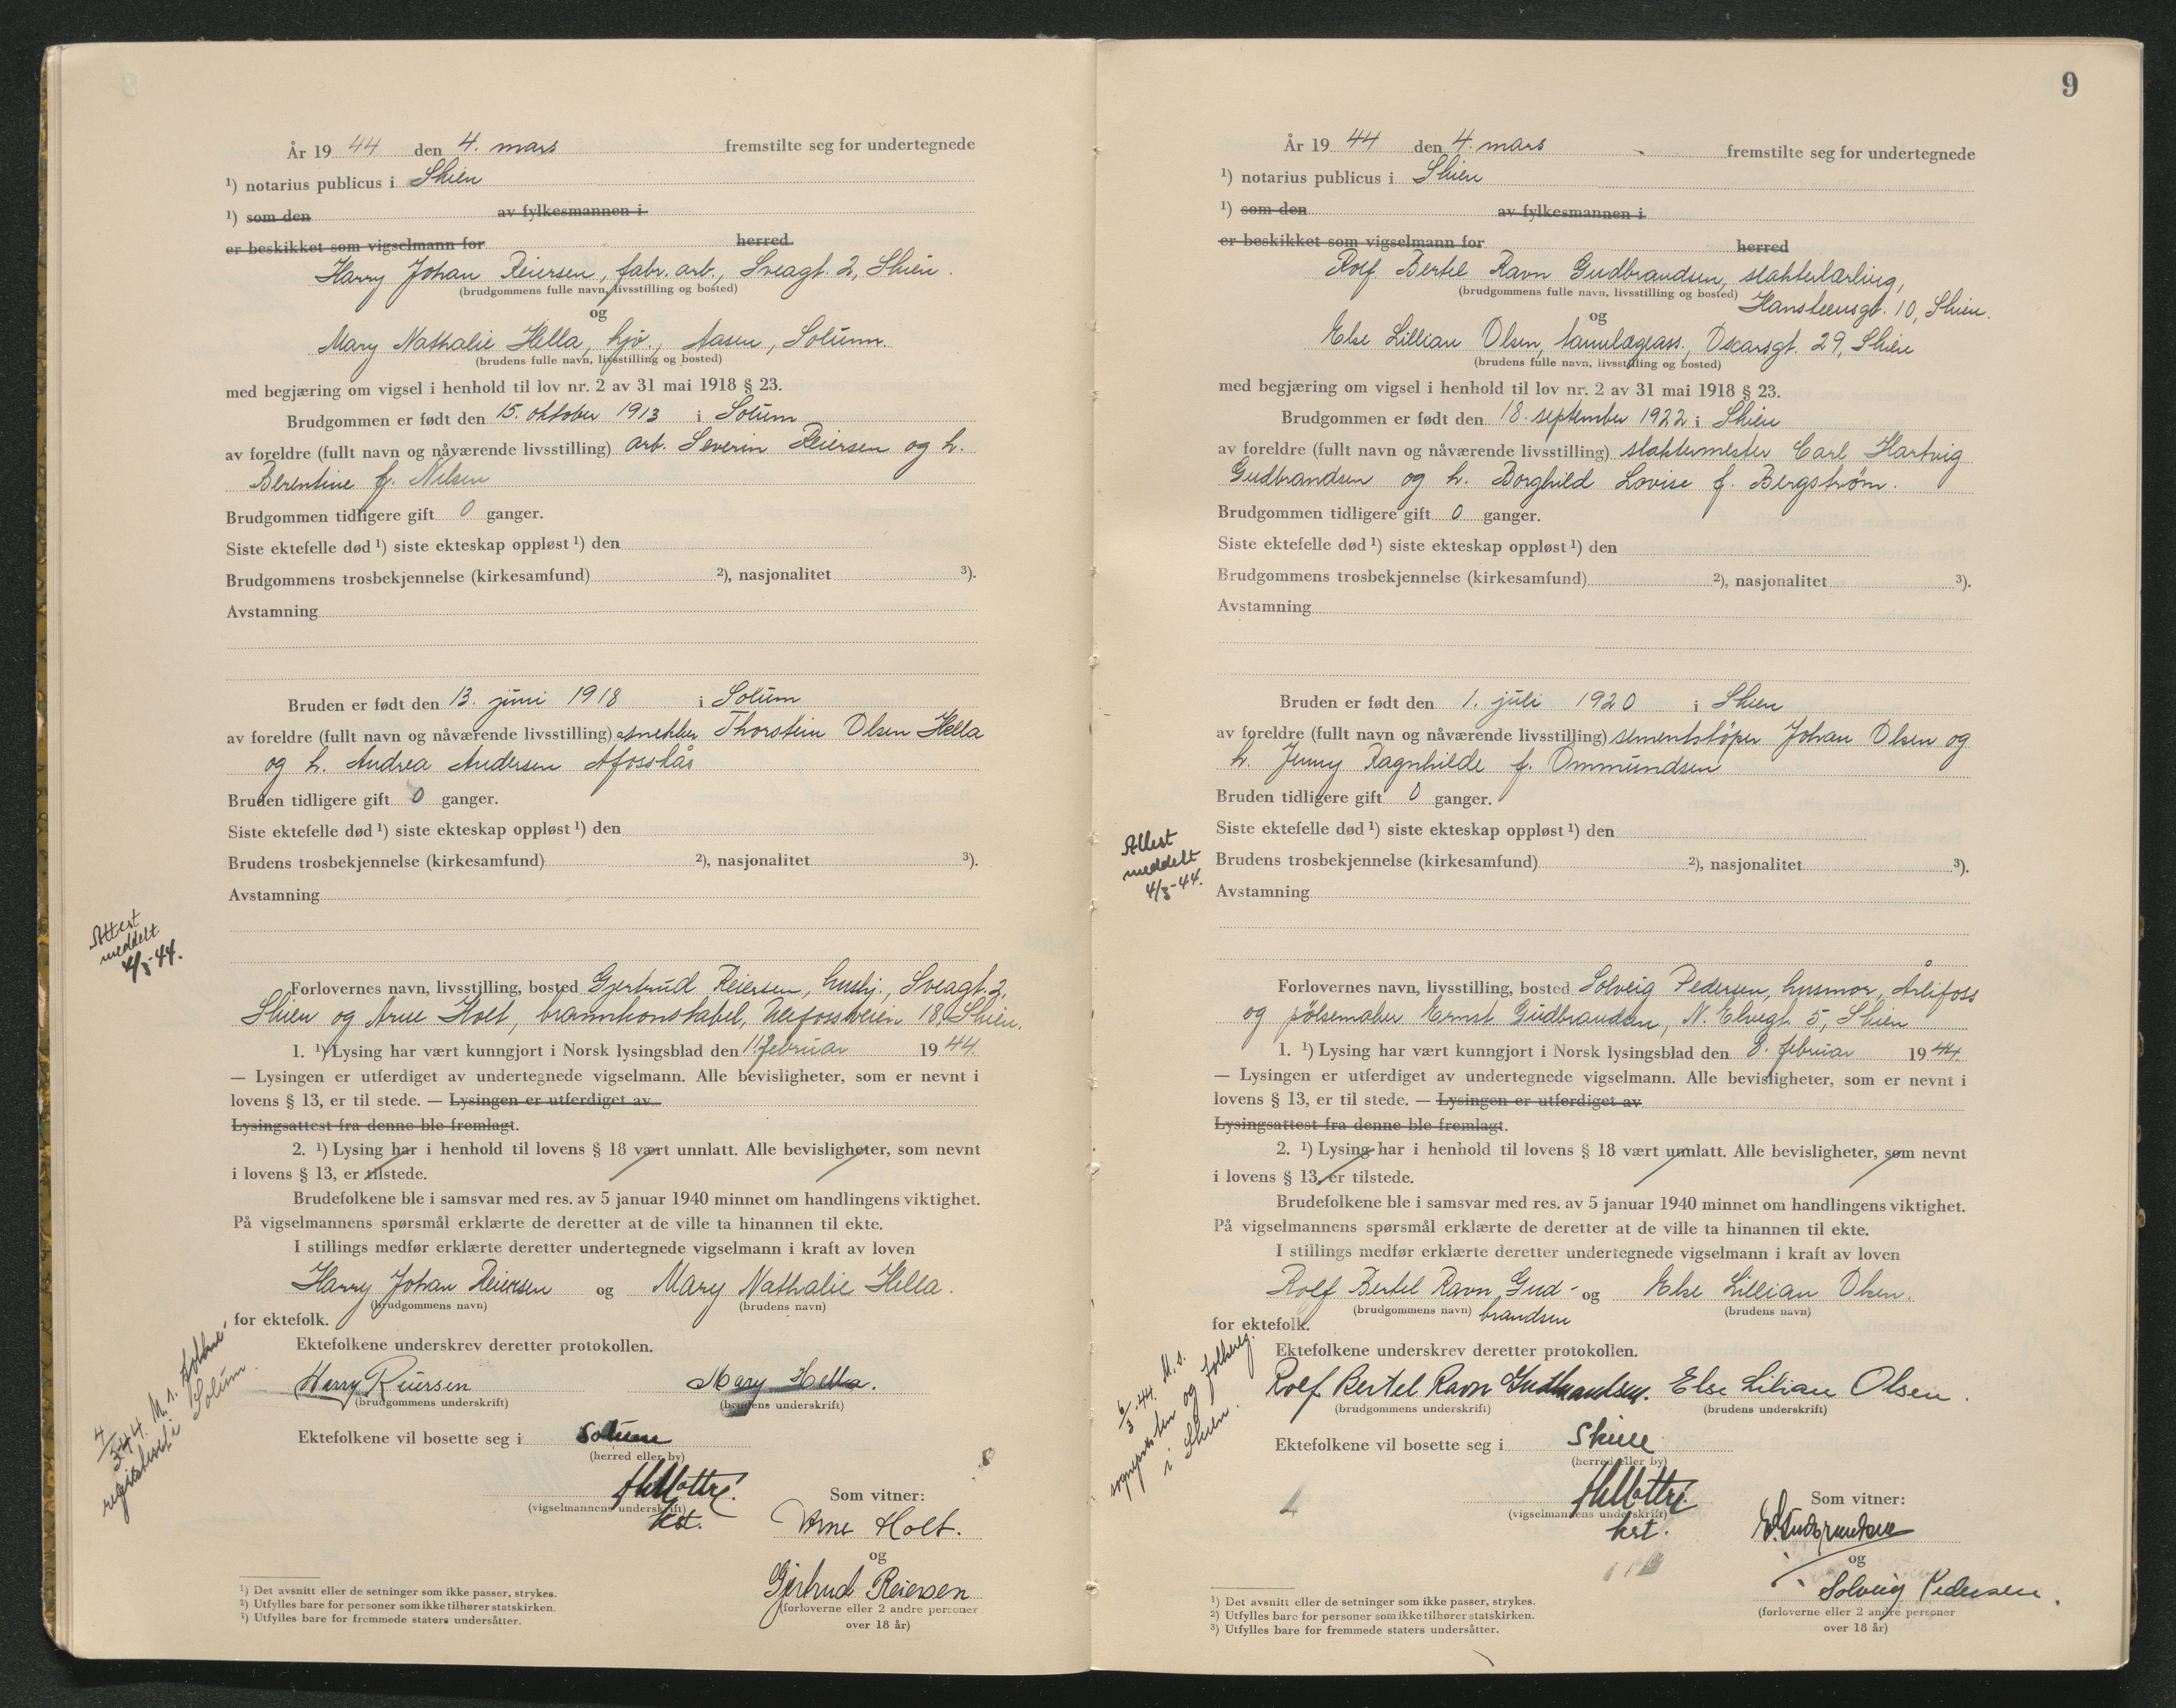 År 19 44 den 4. mars fremstilte seg for undertegnede
¹) notarius publicus i Skien
¹) som den av fylkesmannen i
er beskikket som vigselmann for herred
Harry Johan Reiersen, fabr. arb., Sveagt. 2, Skien.
(brudgommens fulle navn, livsstilling og bosted)
og
Mary Nathalie Hella, hjv., Aasen, Solum.
(brudens fulle navn, livsstilling og bosted)
med begjæring om vigsel i henhold til lov nr. 2 av 31 mai 1918 § 23.
Brudgommen er født den 15. oktober 1913 i Solum
av foreldre (fullt navn og nåværende livsstilling) arb. Severin Reiersen og h.
Berentine f. Nilsen
Brudgommen tidligere gift 0 ganger.
Siste ektefelle død ¹) siste ekteskap oppløst ¹) den
Brudgommens trosbekjennelse (kirkesamfund) ²), nasjonalitet ³).
Avstamning
Bruden er født den 13. juni 1918 i Solum
av foreldre (fullt navn og nåværende livsstilling) snekker Thorstein Olsen Hella
og h. Andrea Andersen Afosskås
Bruden tidligere gift 0 ganger.
Siste ektefelle død ¹) siste ekteskap oppløst ¹) den
Brudens trosbekjennelse (kirkesamfund) ²), nasjonalitet ³).
Avstamning
Attest
meddelt
4/3-44.
Forlovernes navn, livsstilling, bosted Gjertrud Reiersen, hushj., Sveagt. 2,
Skien og Arne Holt, brannkonstabel, Ulefossveien 18, Skien.
1. ¹) Lysing har vært kunngjort i Norsk lysingsblad den 11. februar 19 44.
— Lysingen er utferdiget av undertegnede vigselmann. Alle bevisligheter, som er nevnt i
lovens § 13, er til stede. — Lysingen er utferdiget av
Lysingsattest fra denne ble fremlagt.
2. ¹) Lysing har i henhold til lovens § 18 vært unnlatt. Alle bevisligheter, som nevnt
i lovens § 13, er tilstede.
Brudefolkene ble i samsvar med res. av 5 januar 1940 minnet om handlingens viktighet.
På vigselmannens spørsmål erklærte de deretter at de ville ta hinannen til ekte.
I stillings medfør erklærte deretter undertegnede vigselmann i kraft av loven
Harry Johan Reiersen og Mary Nathalie Hella.
(brudgommens navn) (brudens navn)
for ektefolk.
Ektefolkene underskrev deretter protokollen.
Harry Reiersen Mary Hella.
(brudgommens underskrift) (brudens underskrift)
4/3-44. M. s. folke
registeret i Solum.
Ektefolkene vil bosette seg i Solum
(herred eller by)
(vigselmannens underskrift)
Som vitner:
Arne Holt.
og
Gjertrud Reiersen
(forloverne eller 2 andre personer
over 18 år)
¹) Det avsnitt eller de setninger som ikke passer, strykes.
²) Utfylles bare for personer som ikke tilhører statskirken.
³) Utfylles bare for fremmede staters undersåtter.
9
År 19 44 den 4. mars fremstilte seg for undertegnede
¹) notarius publicus i Skien
¹) som den av fylkesmannen i
er beskikket som vigselmann for herred
Rolf Bertel Ravn Gudbrandsen, slakterlærling,
(brudgommens fulle navn, livsstilling og bosted) Hansteensgt. 10, Skien.
og
Else Lillian Olsen, tannlægeass., Oscarsgt. 29, Skien
(brudens fulle navn, livsstilling og bosted)
med begjæring om vigsel i henhold til lov nr. 2 av 31 mai 1918 § 23.
Brudgommen er født den 18. september 1922 i Skien
av foreldre (fullt navn og nåværende livsstilling) slaktermester Carl Hartvig
Gudbrandsen og h. Borghild Lovise f. Bergstrøm.
Brudgommen tidligere gift 0 ganger.
Siste ektefelle død ¹) siste ekteskap oppløst ¹) den
Brudgommens trosbekjennelse (kirkesamfund) ²), nasjonalitet ³).
Avstamning
Bruden er født den 1. juli 1920 i Skien
av foreldre (fullt navn og nåværende livsstilling) sementstöper Johan Olsen og
h. Jenny Ragnhilde f. Ommundsen
Bruden tidligere gift 0 ganger.
Siste ektefelle død ¹) siste ekteskap oppløst ¹) den
Attest
meddelt
4/3-44.
Brudens trosbekjennelse (kirkesamfund) ²), nasjonalitet ³).
Avstamning
Forlovernes navn, livsstilling, bosted Solveig Pedersen, husmor, Årlifoss
og pölsemaker Ernst Gudbrandsen, N. Elvegt. 5, Skien
1. ¹) Lysing har vært kunngjort i Norsk lysingsblad den 8. februar 19 44.
— Lysingen er utferdiget av undertegnede vigselmann. Alle bevisligheter, som er nevnt i
lovens § 13, er til stede. — Lysingen er utferdiget av
Lysingsattest fra denne ble fremlagt.
2. ¹) Lysing har i henhold til lovens § 18 vært unnlatt. Alle bevisligheter, som nevnt
i lovens § 13, er tilstede.
Brudefolkene ble i samsvar med res. av 5 januar 1940 minnet om handlingens viktighet.
På vigselmannens spørsmål erklærte de deretter at de ville ta hinannen til ekte.
I stillings medfør erklærte deretter undertegnede vigselmann i kraft av loven
Rolf Bertel Ravn Gud- og Else Lillian Olsen.
(brudgommens navn) brandsen (brudens navn)
for ektefolk.
Ektefolkene underskrev deretter protokollen.
Rolf Bertel Ravn Gudbrandsen. Else Lilian Olsen.
(brudgommens underskrift) (brudens underskrift)
6/3-44. M. s.
sognepresten og folkereg.
i Skien.
Ektefolkene vil bosette seg i Skien
(herred eller by)
(vigselmannens underskrift)
Som vitner:
E. Gudbrandsen
og
Solveig Pedersen.
(forloverne eller 2 andre personer
over 18 år)
¹) Det avsnitt eller de setninger som ikke passer, strykes.
²) Utfylles bare for personer som ikke tilhører statskirken.
³) Utfylles bare for fremmede staters undersåtter.